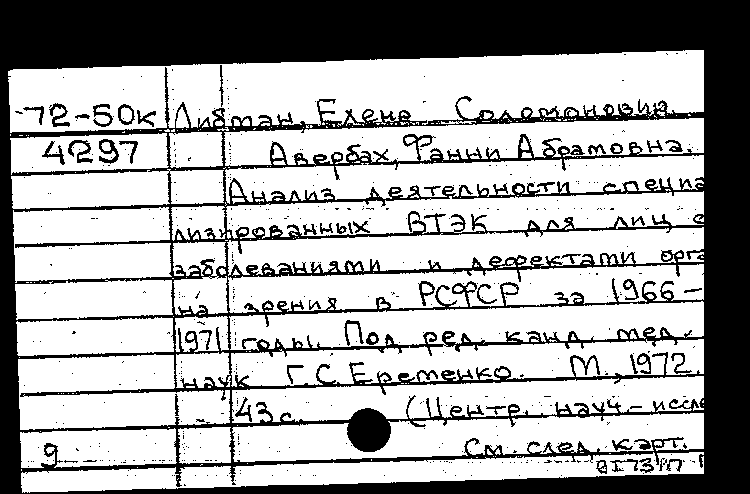 72-50к Либман, Елена Соломоновна.
4297 Авербах, Фанни Абрамовна.
Анализ деятельности специа
лизированных ВТЭК для лиц с
заболеваниями и дефектами орга
на зрения в РСФСР за 1966-
1971 годы. Под ред. канд. мед.
наук Г.С. Еременко. М., 1972.
43 с. (Центр. науч.-иссле
9 См. след. карт.